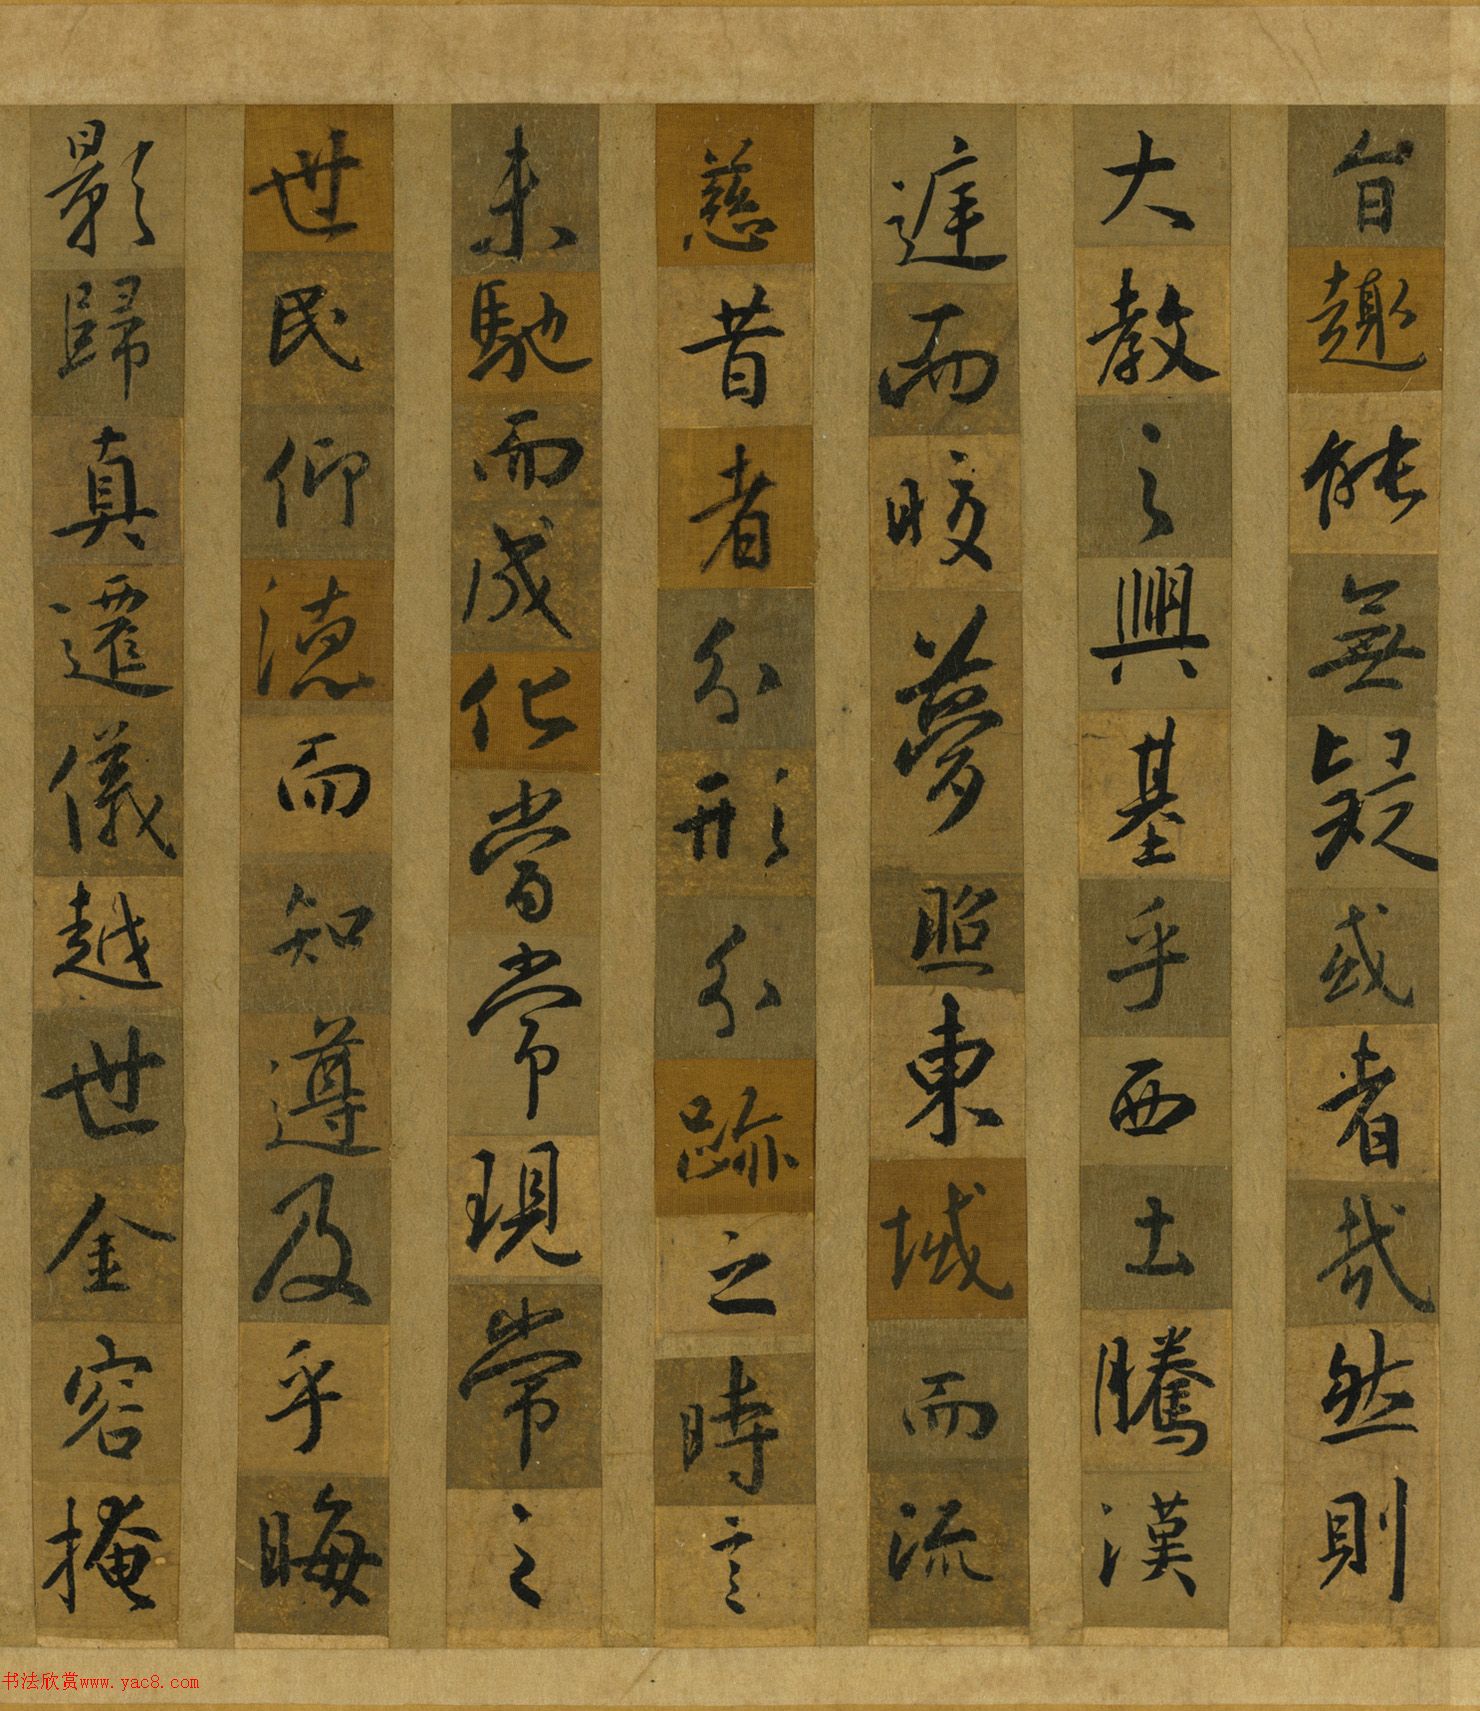 旨趣能無疑或者哉然則
大教之興基乎西土騰漢
庭而皎夢照東域而流
慈昔者分形分跡之時言
未馳而成化當常現常之
世民仰德而知遵及乎晦
影歸真遷儀越世金容掩
书法欣赏www.yac8.com